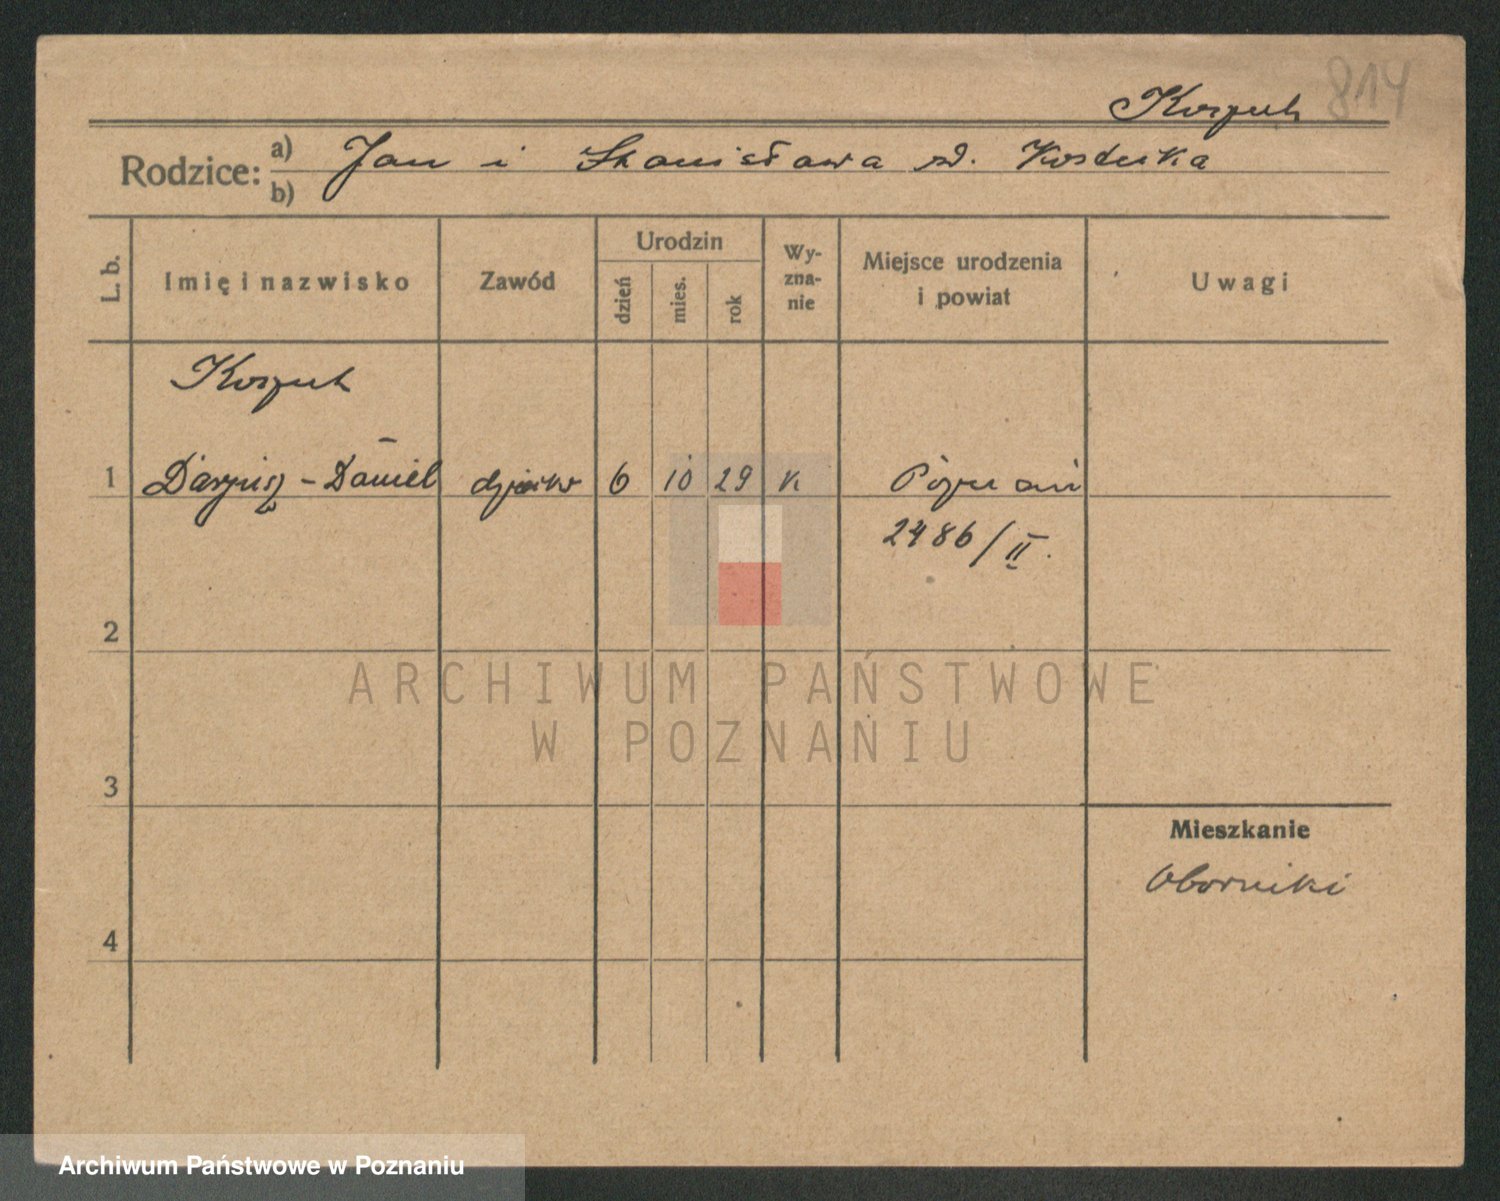 814
Rodzice:
a) Jan i Stanisława
b)
L. b.
Imię i nazwisko
Zawód
Urodzin
dzień
mies.
rok
Wy-
zna-
nie
Miejsce urodzenia
i powiat
Uwagi
1 Daniel 6 10 29 k Poznań
2486/II.
2
3
4
Mieszkanie
Oborniki
ARCHIWUM PAŃSTWOWE
W POZNANIU
Archiwum Państwowe w Poznaniu